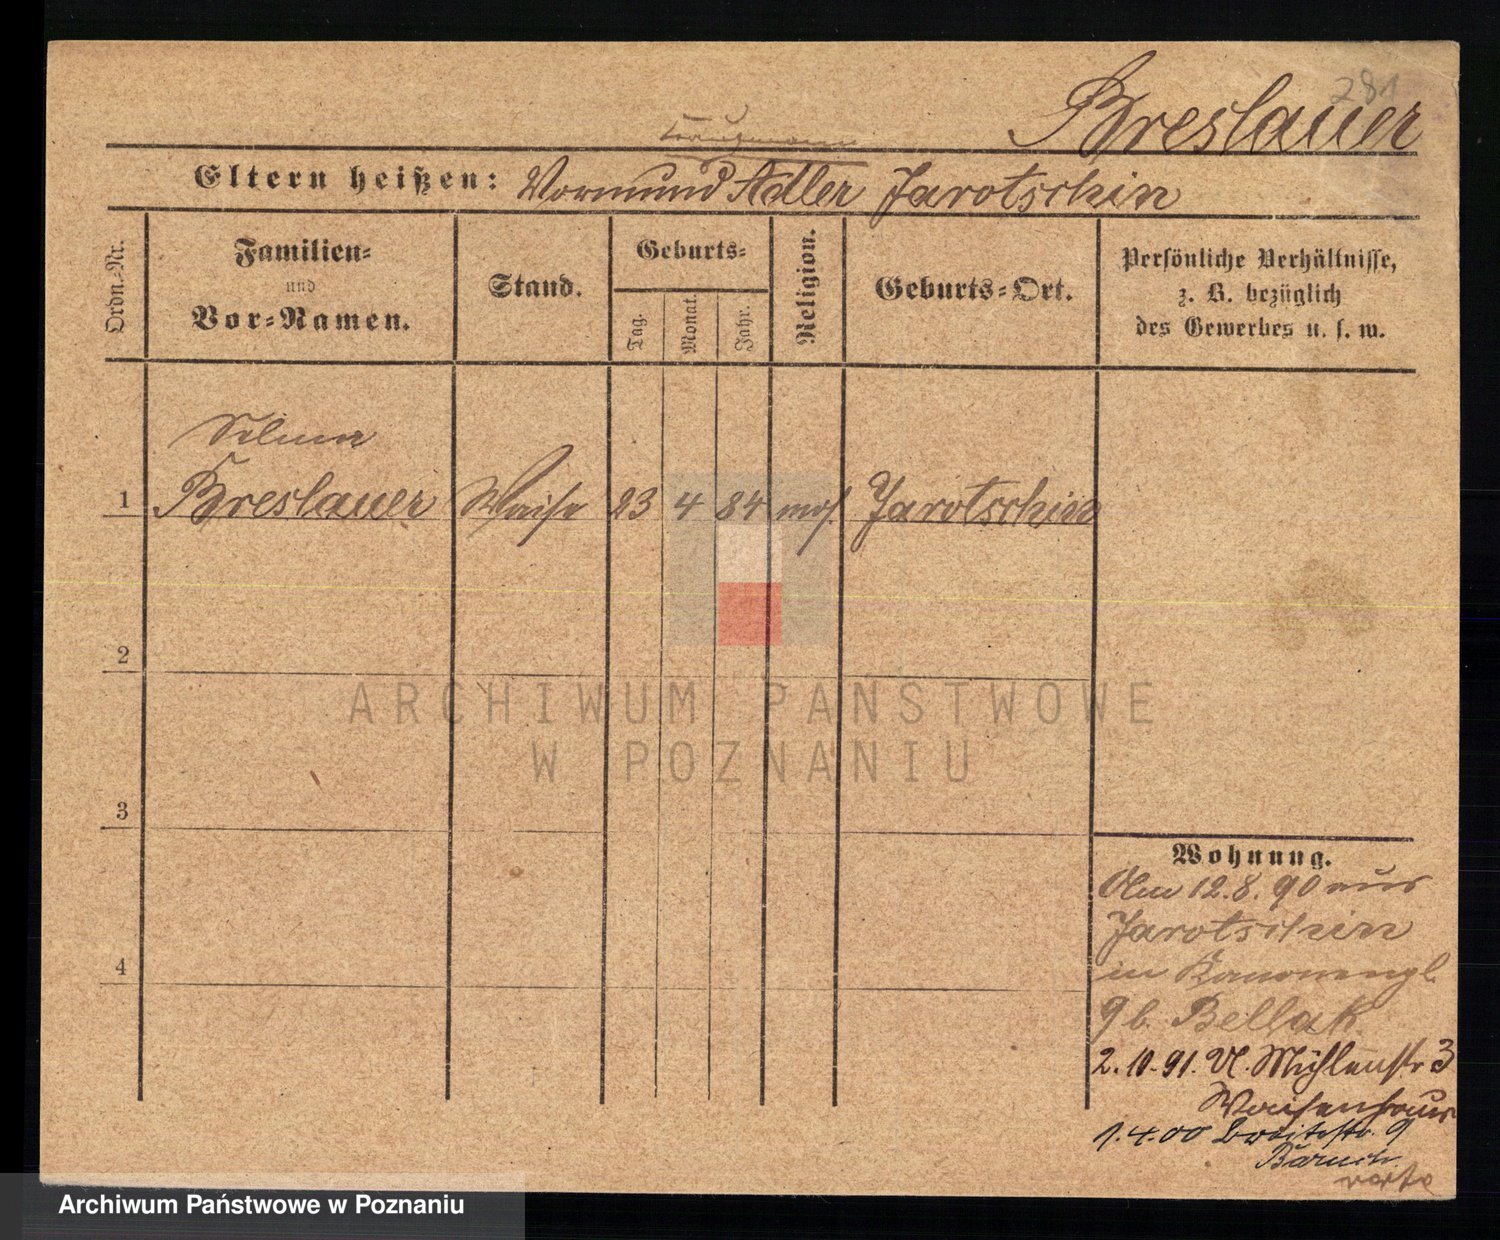 281
Breslauer
Kaufmann
Eltern heißen: Vormund Adler Jarotschin
Ordn.-Nr.
Familien-
und
Vor-Namen.
Stand.
Geburts-
Tag.
Monat.
Jahr.
Religion.
Geburts-Ort.
Persönliche Verhältnisse,
z. B. bezüglich
des Gewerbes u. s. w.
Selma
1 Breslauer Waise 23 4 84 mos. Jarotschin
2
3
4
ARCHIWUM PAŃSTWOWE
W POZNANIU
Wohnung.
Am 12.8.90 aus
Jarotschin
in
9 b. Bellak
2.10.91. Mühlenstr 3
Waisenhaus
1.4.00 Breitestr. 9
Baruch
Archiwum Państwowe w Poznaniu